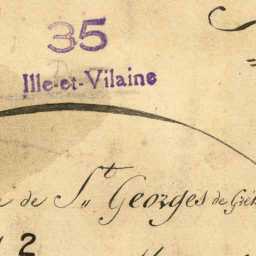 35
Ille-et-Vilaine
de St Georges de Gré
2